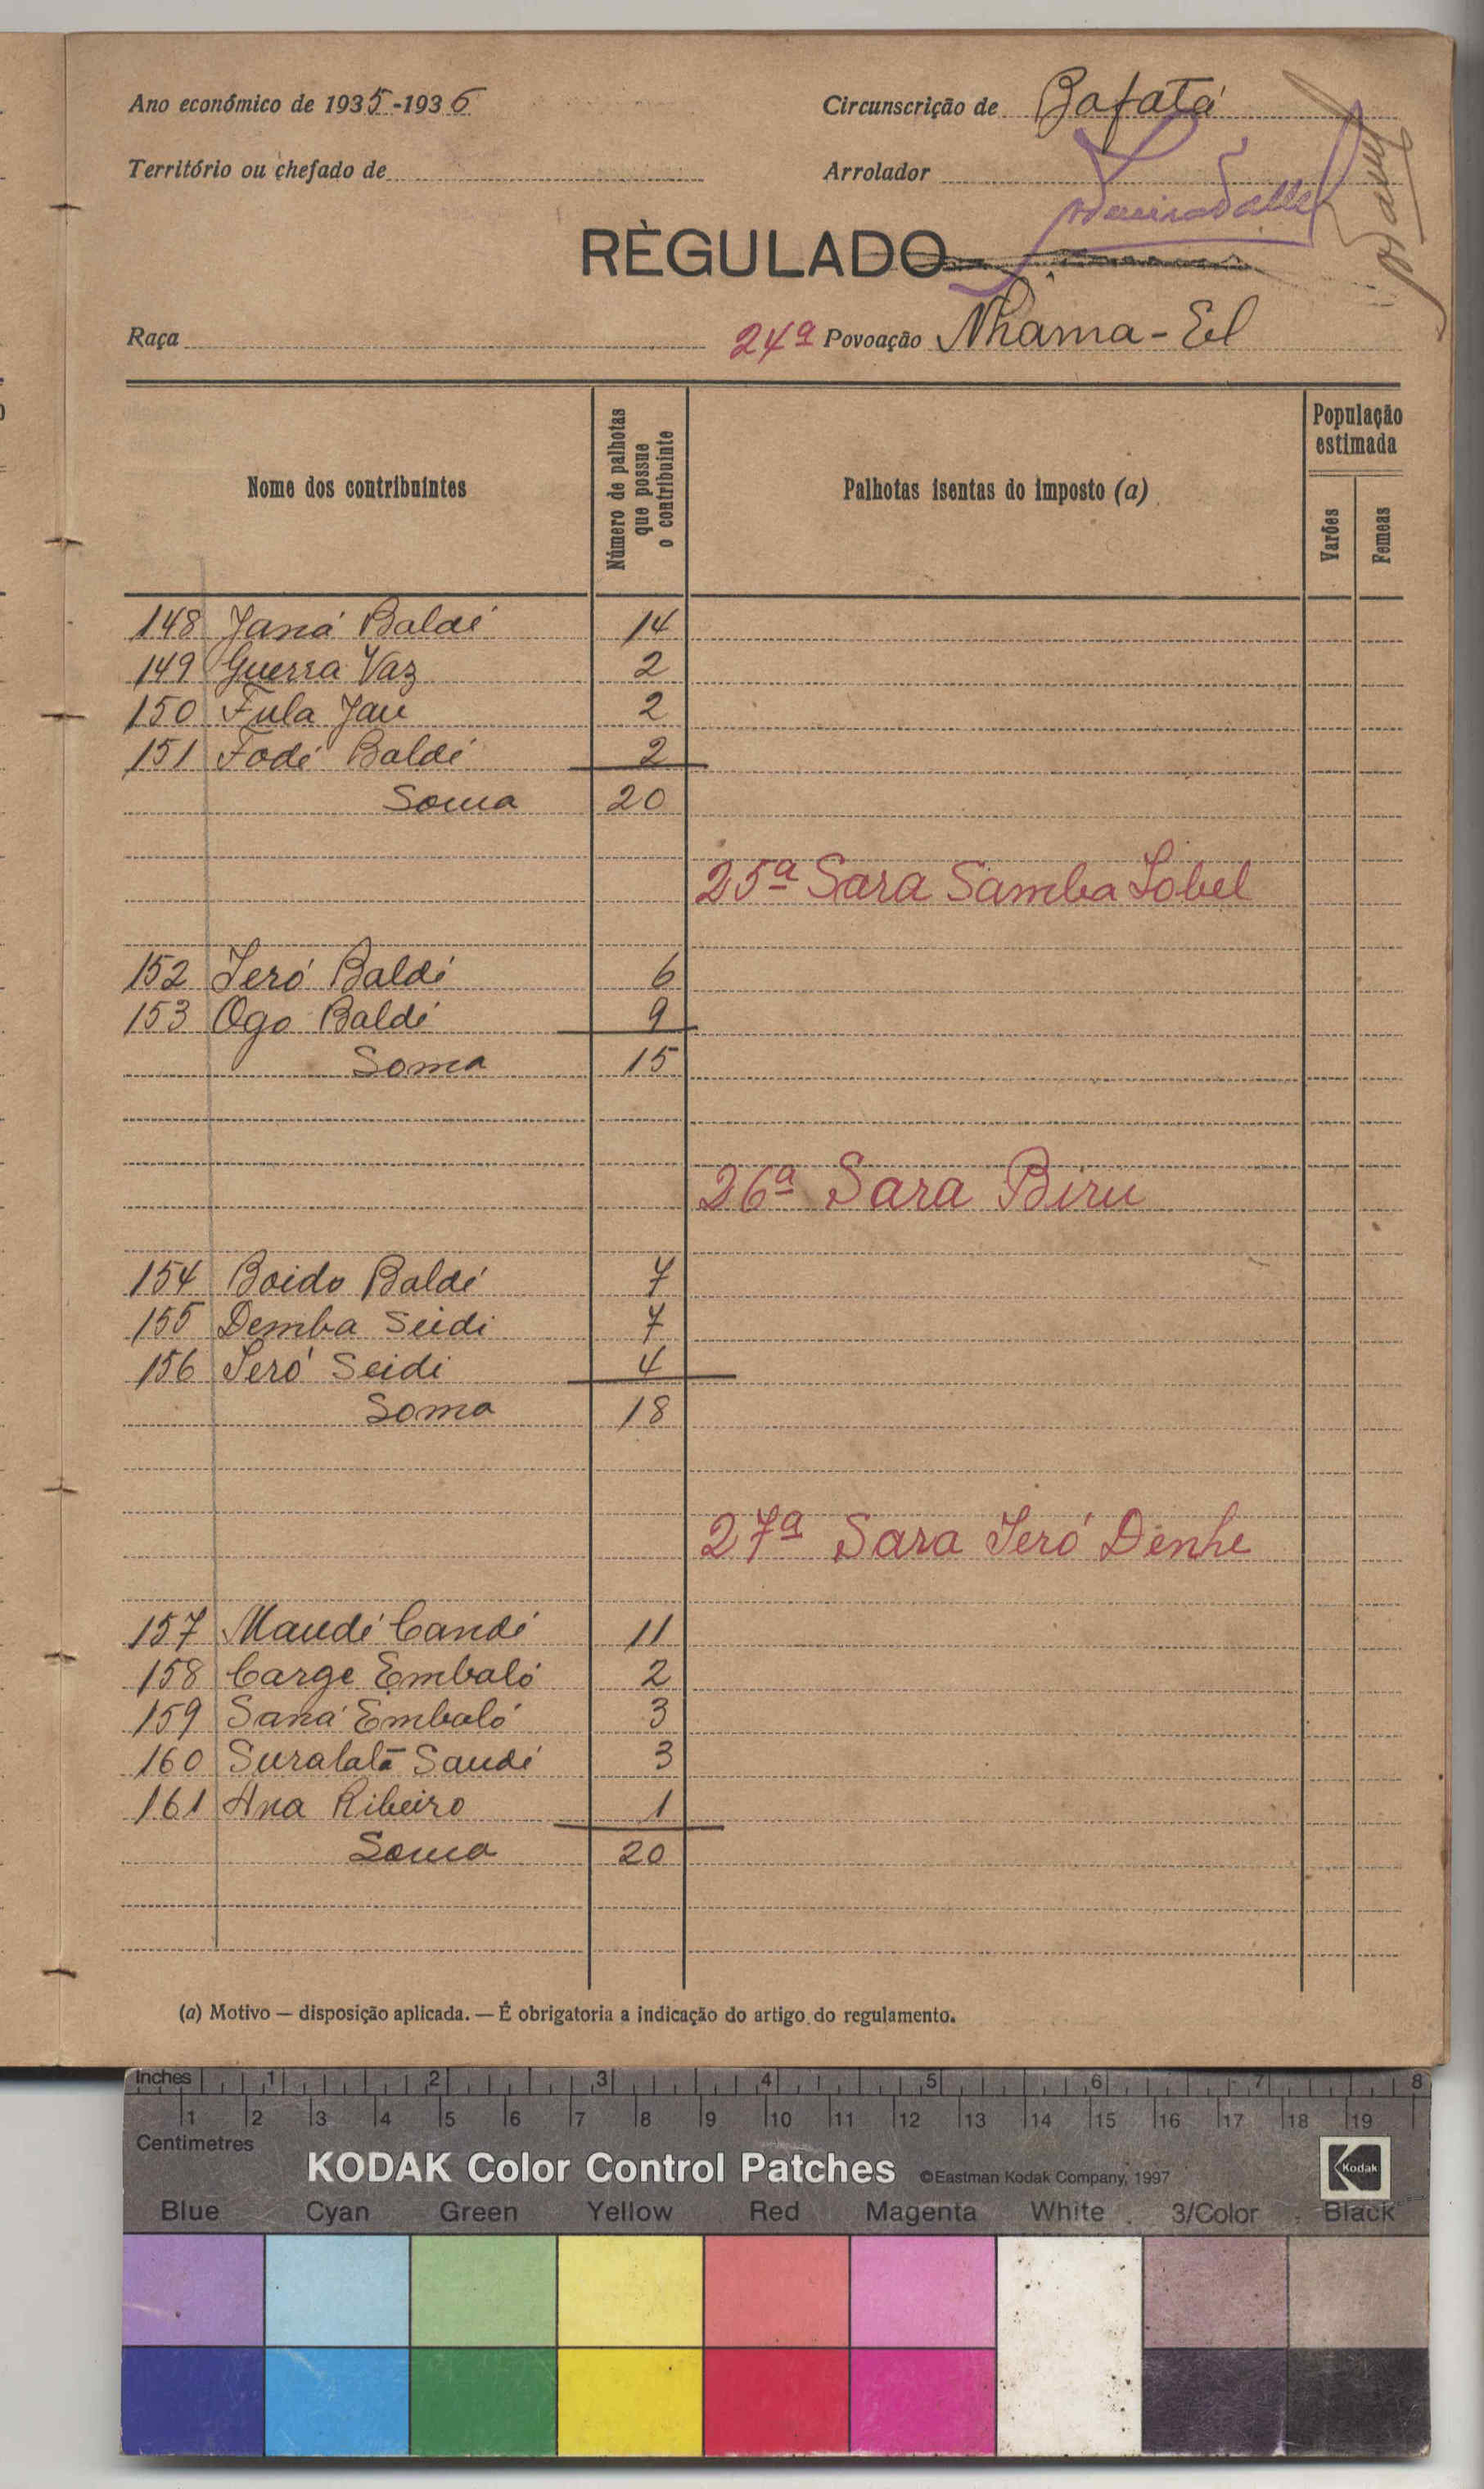 Ano económico de 1935-1936
Circunscrição de Bafatá
Território ou chefado de
Arrolador
RÈGULADO
Raça
24ª Povoação Nhama-El
Nome dos contribuintes
Número de palhotas que possue o contribuinte
Palhotas isentas do imposto (a)
População estimada
Varões
Femeas
148 Janá Baldé 14
149 Guerra Vaz 2
150 Fula Jau 2
151 Fodé Baldé 2
Soma 20
25ª Sara Samba Lobel
152 Jeró Baldé 6
153 Ogo Baldé 9
Soma 15
26ª Sara Biru
154 Boido Baldé 7
155 Demba Seidi 7
156 Jeró Seidi 4
Soma 18
27ª Sara Jeró Denhe
157 Maudé Candé 11
158 Carge Embaló 2
159 Saná Embaló 3
160 Saudé 3
161 Ana Ribeiro 1
Soma 20
(a) Motivo — disposição aplicada. — É obrigatoria a indicação do artigo do regulamento.
Inches 1 2 3 4 5 6 7 8
1 2 3 4 5 6 7 8 9 10 11 12 13 14 15 16 17 18 19
Centimetres
KODAK Color Control Patches ©Eastman Kodak Company, 1997 Kodak
Blue Cyan Green Yellow Red Magenta White 3/Color Black